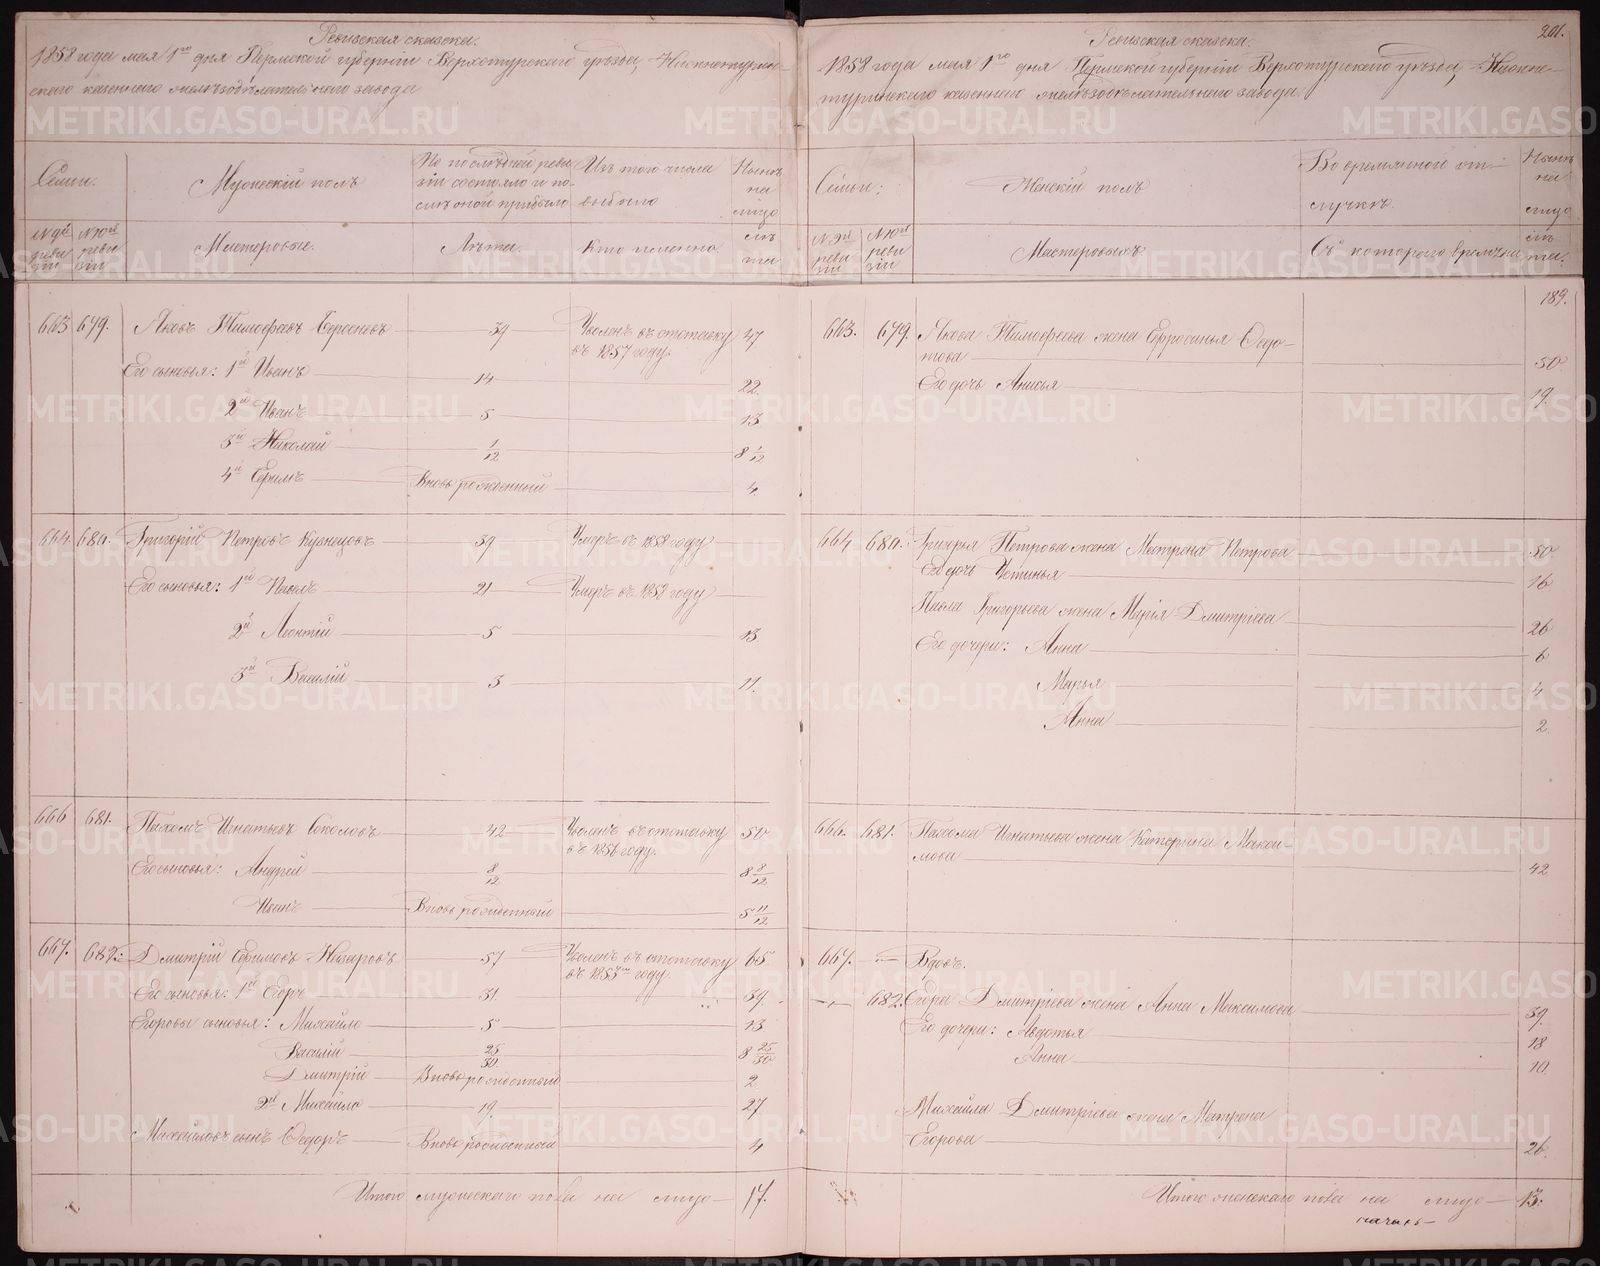 Ревизская сказка.
1858 года мая 1го дня Пермской губернiи Верхотурского уѣзда, Нижнетурин-
скаго казеннаго желѣзодѣлательнаго завода
Семьи.
Мужескiй полъ
По послѣдней реви
зiи состояло и по-
слѣ оной прибыло
Изъ того числа
выбыло
Нынѣ
на
лицо
№ 9й
реви
зiи
№ 10й
реви
зiи
Мастеровые.
Лѣта.
Кто именно.
лѣ
та
663 679. Яковъ Тимофеевъ 39 Уволенъ въ отставку 47
въ 1857 году.
Его сыновья: 1й Иванъ 14 22.
2й Иванъ 5 13
3й Николай 1/12 8 1/12
4й Ефимъ Вновь рожденный 4
664 680. Григорiй Петровъ Кузнецовъ 39 Умеръ въ 1858 году
Его сыновья: 1й Павелъ 21 Умеръ въ 1858 году
2й Леонтiй 5 13
3й Василiй 3 11.
666 681. Пахомъ Игнатьевъ Соколовъ 42 Уволенъ въ отставку 50
въ 1856 году.
Его сыновья: Андрей 8/12 8 8/12
Иванъ Вновь рожденный 5 11/12
667. 682. Дмитрiй Ефимовъ Назаровъ 57 Уволенъ въ отставку 65
въ 1853м году.
Его сыновья: 1й Егоръ 31. 39.
Егоровы сыновья: Михайло 5 13
Василiй 25/30 8 25/30
Дмитрiй Вновь рожденный 2
2й Михайло 19. 27
Михайловъ сынъ Федоръ Вновь рожденный 4
Итого мужескаго пола на лицо 17.
201.
Ревизская сказка.
1858 года мая 1го дня Пермской губернiи Верхотурского уѣзда, Нижне-
туринскаго казеннаго желѣзодѣлательнаго завода.
Семьи;
Женскiй полъ
Во временной от-
лучкѣ.
Нынѣ
на
лицо
№ 9й
реви
зiи
№ 10й
реви
зiи
Мастеровыхъ
Съ котораго времени
лѣ
та.
189.
663. 679. Якова Тимофеева жена Ефросинья Федо-
това 50
Его дочь Анисья 19.
664 680. Григорья Петрова жена Матрена Петрова 50
Его дочь Устинья 16
Павла Григорьева жена Марiя Дмитрiева 26
Его дочери: Анна 6
Марья 4
Анна 2
666. 681. Пахома Игнатьева жена Катерина Макси-
мова 42
667. Вдовъ.
682. Егора Дмитрiева жена Анна Максимова 39.
Его дочери: Авдотья 18
Анна 10.
Михайла Дмитрiева жена Матрена
Егорова 26.
Итого женскаго пола на лицо 13.
METRIKI.GASO-URAL.RU